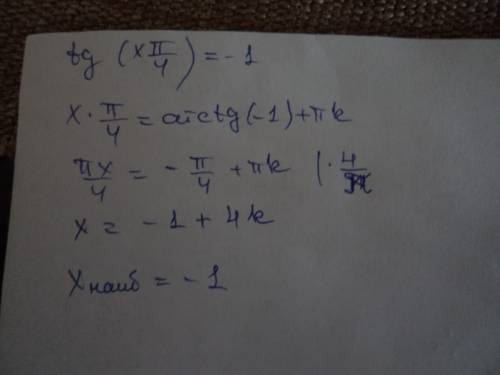 tg (x π/4) = -1
x · π/4 = arctg(-1) + πk
πx/4 = - π/4 + πk | · 4/π
x = -1 + 4k
x наиб = -1